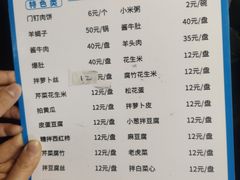 特色类
门钉肉饼 6元/个 小米粥 2元/碗
羊蝎子 50元/锅 酱牛肚 40元/盘
酱牛肉 40元/盘 羊头肉 35元/盘
爆肚 40元/盘 花生米 12元/盘
拌萝卜丝 12元/盘 腐竹花生米 12元/盘
芹菜花生米 12元/盘 松花蛋 12元/盘
拍黄瓜 12元/盘 拌萝卜皮 12元/盘
皮蛋豆腐 12元/盘 小葱拌豆腐 12元/盘
糖拌西红柿 12元/盘 麻豆腐 12元/盘
芹菜腐竹 12元/盘 老虎菜 12元/盘
拌豆腐丝 12元/盘 拌白菜心 12元/盘